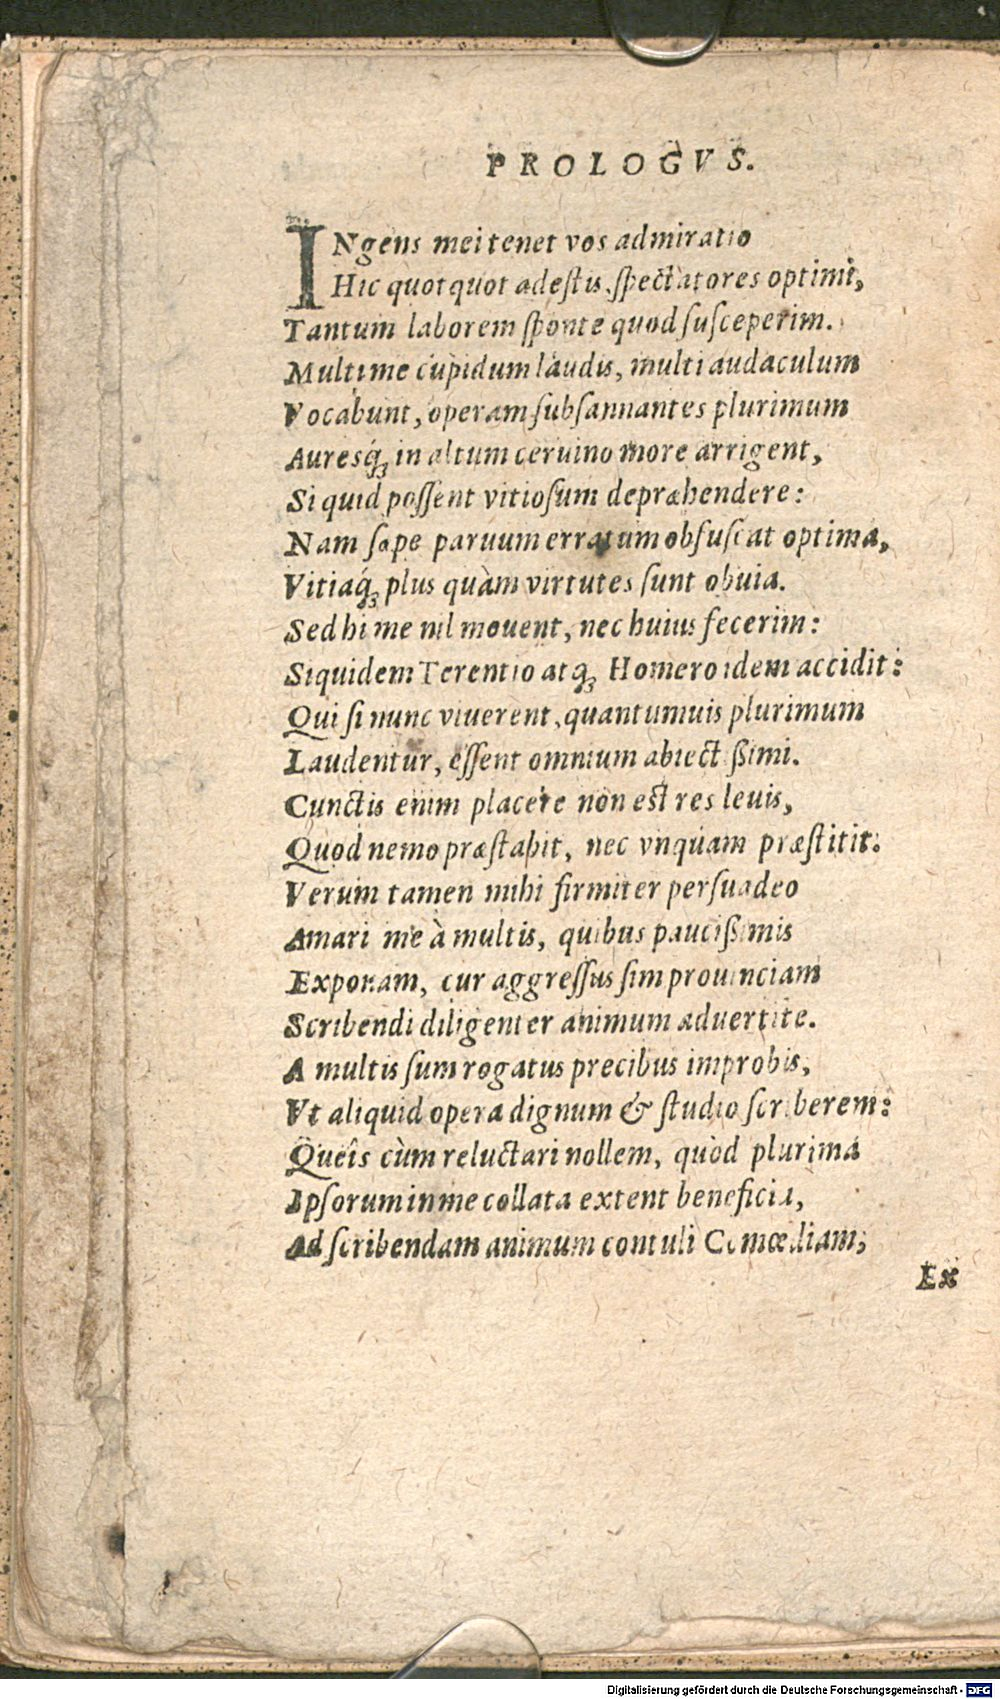 PROLOGVS.
INgens mei tenet vos admiratio
Hic quotquot adeſtis ſpectatores optimi,
Tantum laborem ſponte quod ſuſceperim.
Multi me cupidum laudis, multi audaculum
Vocabunt, operam ſubſannantes plurimum
Auresq́ꝫ in altum ceruino more arrigent,
Si quid poſſent vitioſum depræhendere:
Nam ſæpe paruum erratum obfuſcat optima,
Vitiaq́ꝫ plus quàm virtutes ſunt obuia.
Sed hi me nil mouent, nec huius fecerim:
Siquidem Terentio atqꝫ Homero idem accidit:
Qui ſi nunc viuerent, quantumuis plurimum
Laudentur, eſſent omnium abiectißimi.
Cunctis enim placere non est res leuis,
Quod nemo præſtabit, nec vnquam præſtitit:
Verum tamen mihi firmiter perſuadeo
Amari me à multis, quibus paucißimis
Exponam, cur aggreſſus ſim prouinciam
Scribendi diligenter animum aduertite.
A multis ſum rogatus precibus improbis,
Vt aliquid opera dignum & ſtudio ſcriberem:
Queîs cùm reluctari nollem, quòd plurima
Ipſorum in me collata extent beneficia,
Ad ſcribendam animum contuli Comœdiam;
Ex
Digitalisierung gefördert durch die Deutsche Forschungsgemeinschaft - DFG